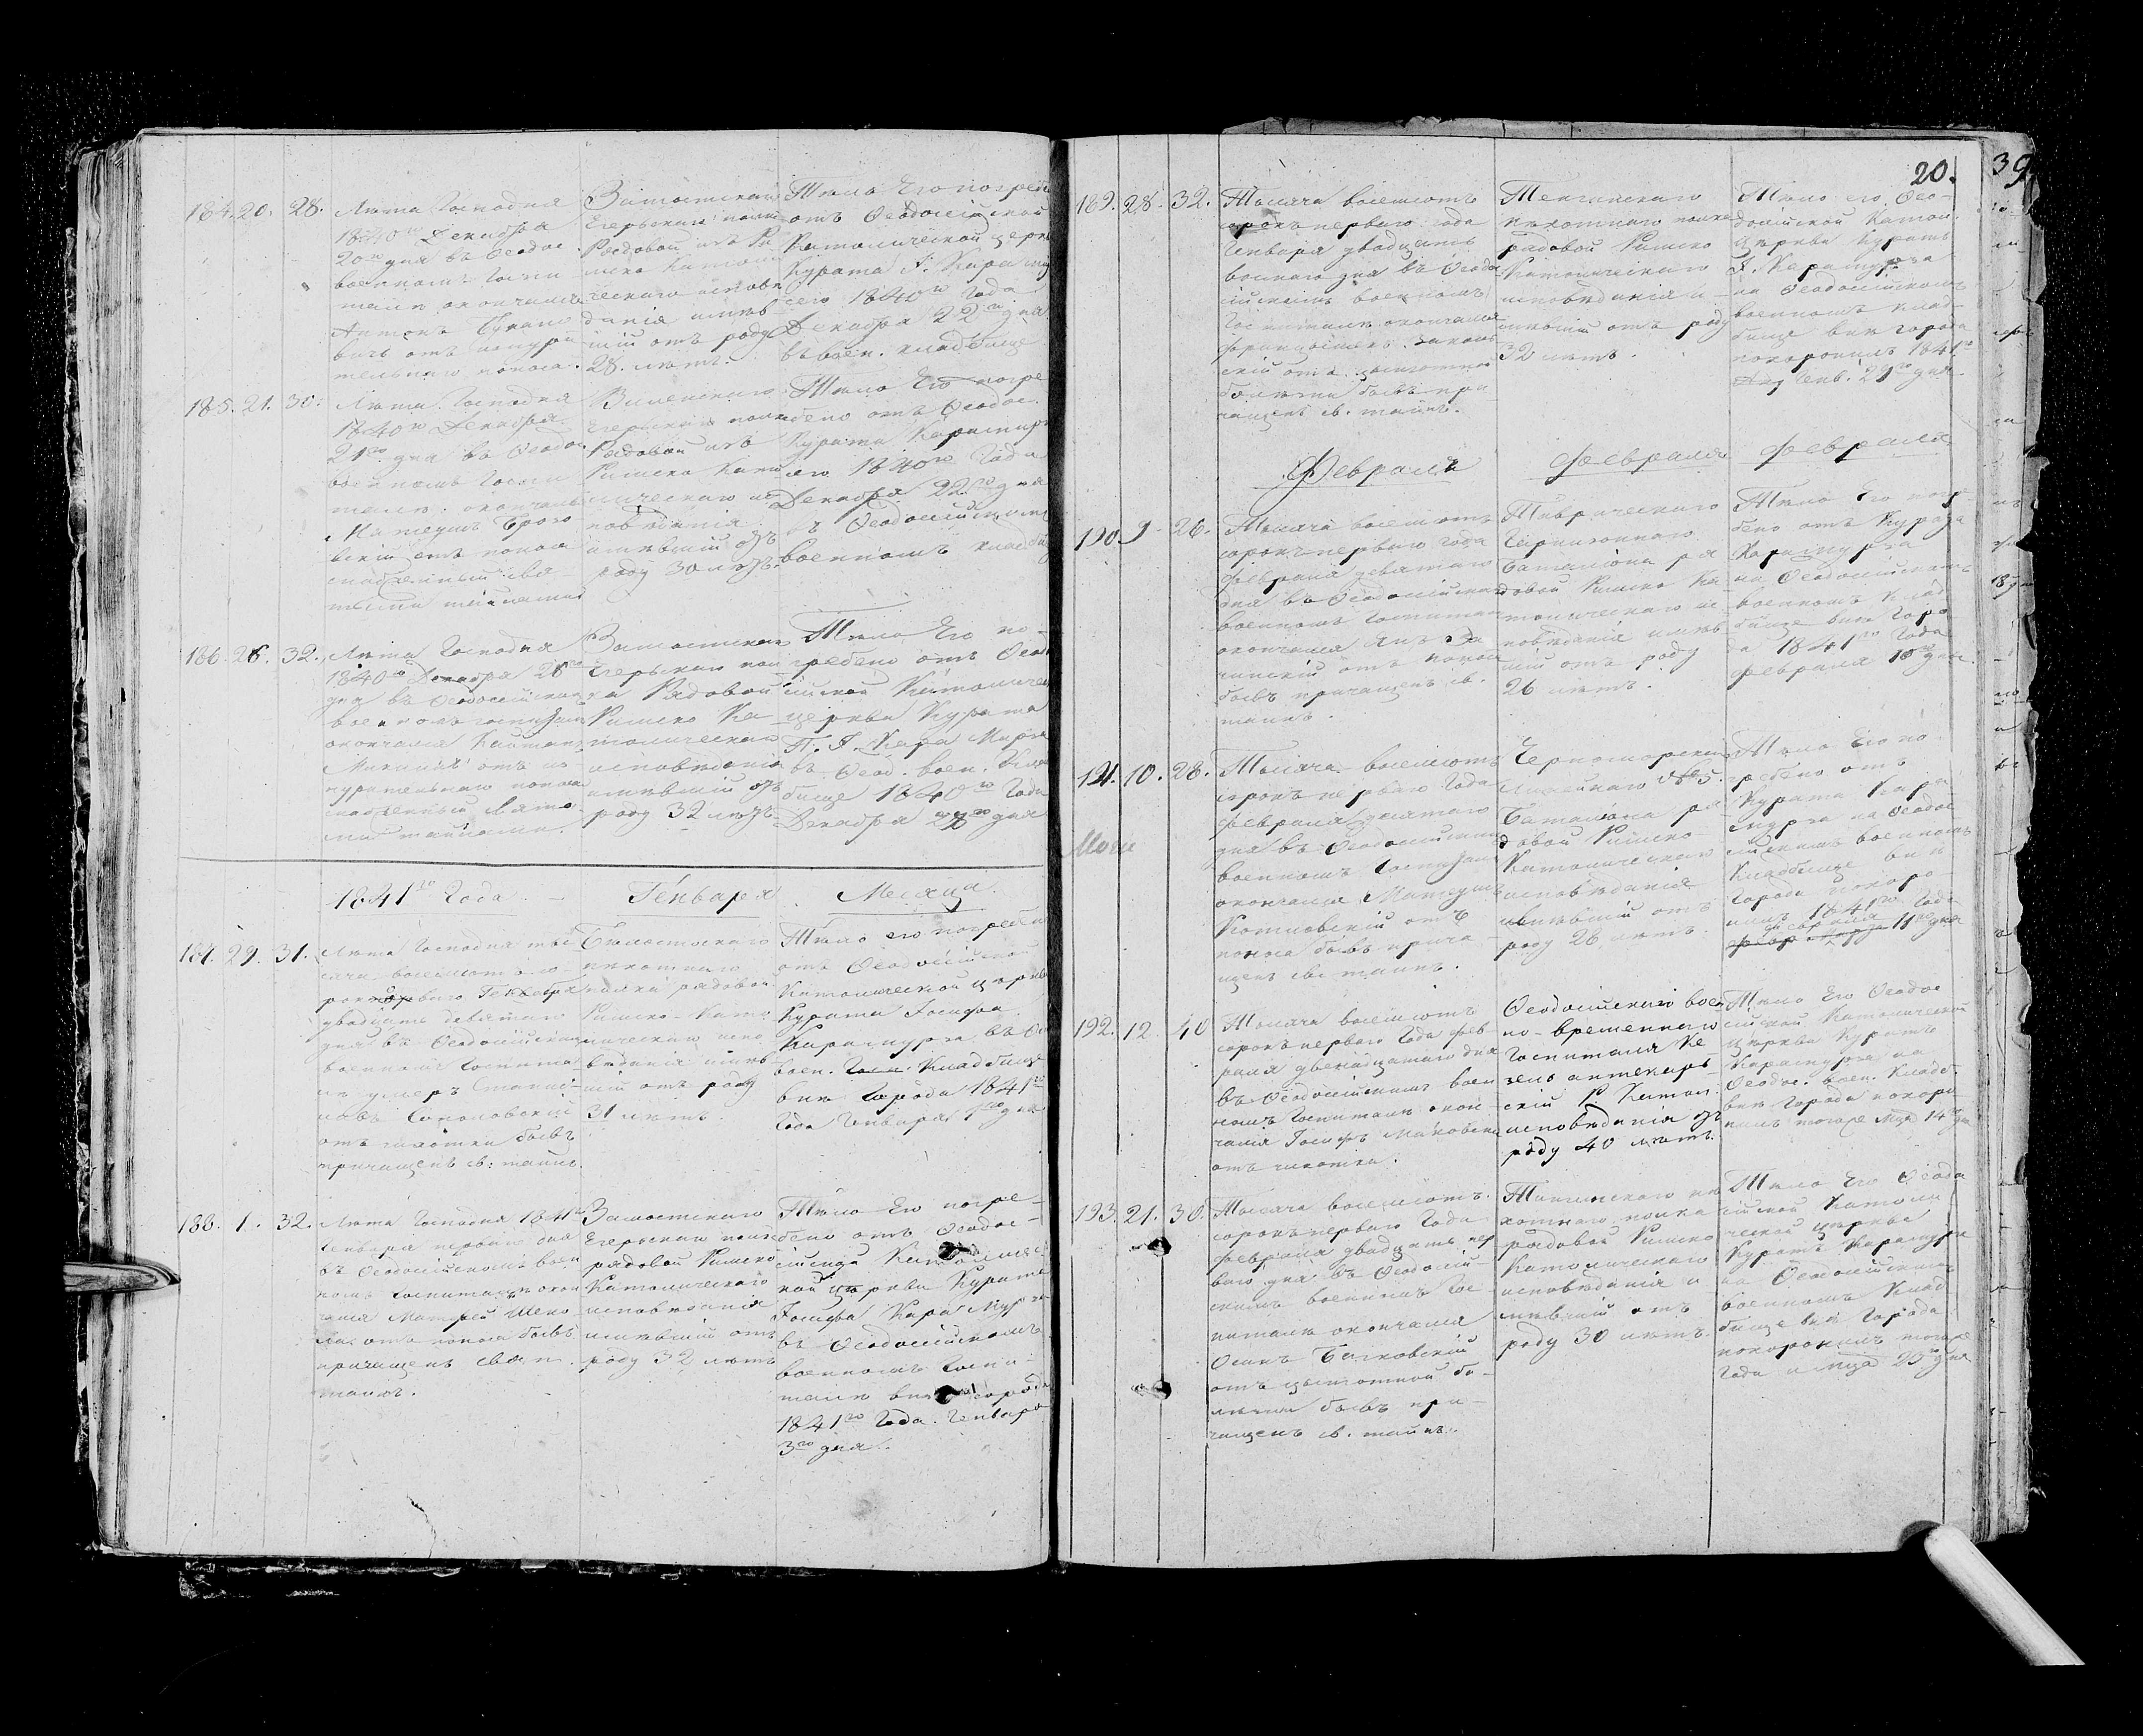 184. 20. 28.
Лѣта Господня
1840го Декабря
20го дня въ Ѳеодос.
военномъ Госпи
талѣ окончался
Антонъ
вичь отъ изнури
тельнаго поноса.
Замостскаго
Егерьскаго полка
Рядовой изъ Ри
мско Католи
ческаго исповѣ
данія имѣв
шій отъ роду
28. лѣтъ.
Тѣло Его погребе
отъ Ѳеодосійской
Католической церкв
Курата І. Карамур
сего 1840го Года
Декабря 22го дня
въ воен. кладбище
185. 21. 30.
Лѣта Господня
1840го Декабря
21го дня въ Ѳеодос
военномъ Госпи
талѣ окончался
Матеушъ
вскій отъ поноса
снабженный свя
тыми тайнами
Виленскаго
егерьскаго полка
Рядовой изъ
Римско Като
лическаго ис
повѣданія
имѣвшій отъ
роду 30 лѣтъ.
Тѣло Его погре
бено отъ Ѳеодос.
Курата Карамурз
сего 1840го Года
Декабря 22го дня
въ Ѳеодосійскомъ
военномъ кладби
186. 26. 32.
Лѣта Господня
1840го Декабря 26го
дня въ Ѳеодосійском
военномъ госпиталѣ
окончался
отъ из
нурительнаго поноса
снабженный Свято
ми тайнами.
Замостскаго
Егерьскаго пол
ка Рядовой
Римско Ка
толическаго
исповѣданія
имѣвшій отъ
роду 32 лѣтъ
Тѣло Его по-
гребено отъ Ѳеод
сійской Католичес
церкви Курата
П. І. Кара Мирза
въ Ѳеод. воен. Клад
бище 1840го Года
Декабря дня
1841го Года. — Генваря Месяца.
187. 29. 31.
Лѣта Господня тыс
сяча восемьсотъ со-
рокъ перваго Генваря
двадцать девятаго
дня въ Ѳеодосійском
военномъ Госпита
лѣ умеръ Станис
лавъ Соколовскій
отъ чахотки бывъ
причащенъ св: таинъ.
Бѣлостокскаго
пѣхотнаго
полка рядовой
Римско-Като
лическаго испо
вѣданія имѣв
шій отъ роду
31 лѣтъ.
Тѣло его погребен
отъ Ѳеодосійской
Католической церкв
Курата Іосифа
Карамурза въ Ѳе
воен. Кладбище
внѣ Города 1841го
Года Генваря дня
188. 1. 32.
Лѣта Господня 1841го
Генваря перваго дня
въ Ѳеодосійскомъ воен
номъ госпиталѣ окон
чался Матфей
отъ поноса бывъ
причащенъ Свят.
таинъ.
Замостскаго
Егерьскаго полка
рядовой Римско
Католическаго
исповѣданія
имѣвшій отъ
роду 32 лѣтъ
Тѣло Его погре-
бено отъ Ѳеодос-
Католичес
кой церкви Курата
Іосифа Кара Мурза
въ Ѳеодосійскомъ
военномъ Госпи-
талѣ внѣ города
1841го Года. Генваря
3го дня.
20. 39
189. 28. 32.
Тысяча восемьсотъ
сорокъ перваго года
Генваря двадцать
восмаго дня въ Ѳеодо
сійскомъ военномъ
Госпиталѣ окончался
Францишекъ
скій отъ цынготной
болѣзни бывъ при
чащенъ св. таинъ.
Тенгинскаго
пѣхотнаго полка
рядовой Римско
Католическаго
исповѣданія и-
мѣвшій отъ роду
32 лѣтъ.
Тѣло его Ѳео-
досійской Катол.
Церкви Куратъ
І. Карамурза
на Ѳеодосійскомъ
военномъ клад-
бище внѣ города
похоронилъ 1841го
Генв. 29го дня.
Февраль Февраля Февраля
190. 9. 26.
Тысяча восемьсотъ
сорокъ перваго года
Февраля девятаго
дня въ Ѳеодосійском
военномъ Госпитал
окончался Янъ
чинскій отъ поноса
бывъ причащенъ св.
таинъ.
Таврическаго
Гарнизоннаго
Баталіона ря
довой Римско Ка
толическаго ис
повѣданія имѣв
шій отъ роду
26 лѣтъ.
Тѣло Его погр
бено отъ Курата
Карамурза
на Ѳеодосійскомъ
военномъ клад
бище внѣ Горо
да 1841го Года
февраля 10го дня.
191. 10. 28.
Тысяча восемьсотъ
сорокъ перваго Года
февраля десятаго
дня въ Ѳеодосійском
военномъ Госпиталѣ
окончался Матеушъ
Котловскій отъ
поноса бывъ прича
щенъ св: таинъ.
Черноморскаго
Линейнаго № 5.
Баталіона ря
довой Римско-
Католическаго
исповѣданія
имѣвшій отъ
роду 28 лѣтъ.
Тѣло Его по-
гребено отъ
Курата Кара
мурза на Ѳеодос
сійскомъ военномъ
Кладбище внѣ
Города похоро
нилъ 1841го Года
февраля 11го дня
192. 12. 40
Тысяча восемьсотъ
сорокъ перваго Года фев
раля двенадцатаго дня
въ Ѳеодосійскомъ воен
номъ Госпиталѣ окон
чался Іосифъ Маковски
отъ чахотки.
Ѳеодосійскаго воен
но-временнаго
Госпиталя
аптекарь-
скій Р. Катол.
исповѣданія отъ
роду 40 лѣтъ.
Тѣло Его Ѳеодос
сійской Католической
церкви Куратъ
Карамурза на
Ѳеодос. воен. Кладб.
внѣ Города похоро
нилъ тогоже мца 14го дня
193. 21. 30.
Тысяча восемьсотъ.
сорокъ перваго Года
февраля двадцать пер
ваго дня въ Ѳеодосій-
скомъ военномъ Гос-
питалѣ окончался
Осипъ Бачковскій
отъ цынготной бо-
лѣзни бывъ при-
чащенъ св. таинъ.
Тенгинскаго пѣ
хотнаго полка
рядовой Римско
Католическаго
исповѣданія и
мѣвшій отъ
роду 30 лѣтъ.
Тѣло Его Ѳеодо
сійской Католи
ческой церкви
Куратъ Карамурза
на Ѳеодосійскомъ
военномъ Клад
бище внѣ Города
похоронилъ тогоже
Года и мца 23го дня